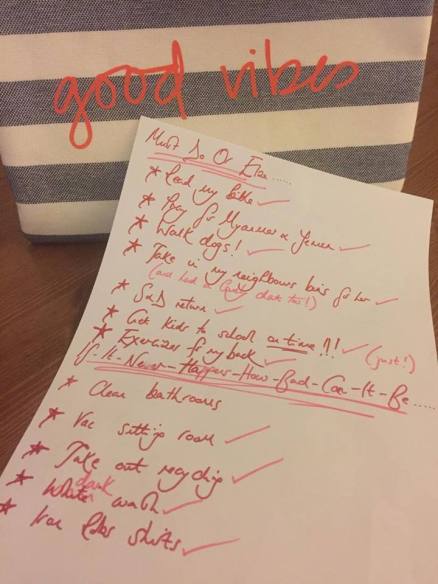 good vibes
Must Do Or Else......
* Read my bible ✓
* Pray for Myanmar & Yemen ✓
* Walk dogs! ✓
* Take in my neighbours bins for her ✓
(and had a lovely chat too!)
* Send return ✓
* Get kids to school on time!!! ✓ (just!)
* Exercises for my back ✓
If-It-Never-Happens-How-Bad-Can-It-Be.....
* Clean bathrooms
* Vac sitting room ✓
* Take out recycling ✓
dark
* White wash ✓
* Iron shirts ✓